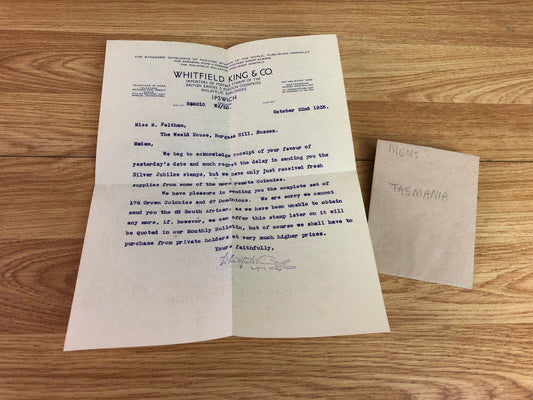 THE STANDARD CATALOGUE OF POSTAGE STAMPS OF THE WORLD, PUBLISHED ANNUALLY
WHITFIELD KING & CO.
IMPORTERS OF POSTAGE STAMPS OF THE
BRITISH EMPIRE & FOREIGN COUNTRIES
PHILATELIC PUBLISHERS
IPSWICH
October 22nd 1935.
Miss M. Feltham,
The Weald House, Burgess Hill, Sussex.
Madam,
We beg to acknowledge receipt of your favour of
yesterday's date and much regret the delay in sending you the
Silver Jubilee stamps, but we have only just received fresh
supplies from some of the more remote Colonies.
We have pleasure in sending you the complete set of
170 Crown Colonies and 67 Dominions. We are sorry we cannot
send you the 6d South African, as we have been unable to obtain
any more, if, however, we can offer this stamp later on it will
be quoted in our Monthly Bulletin, but of course we shall have to
purchase from private holders at very much higher prices.
Yours faithfully,
MUNS
TASMANIA